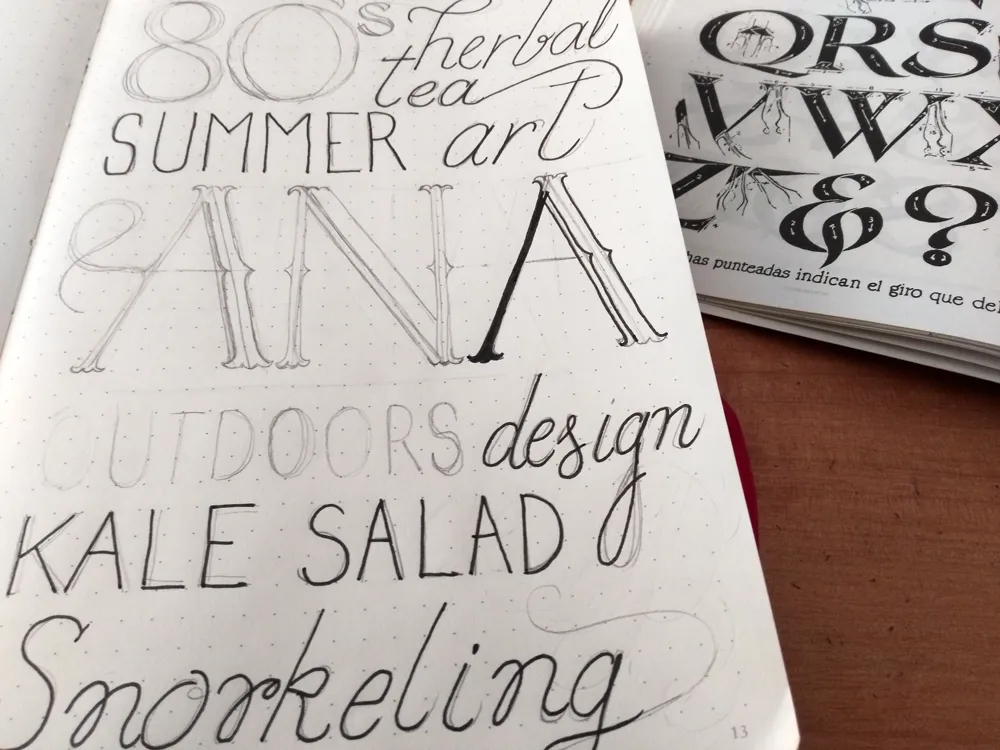 80's herbal
tea
SUMMER art
ANA
OUTDOORS design
KALE SALAD
Snorkeling
13
QRS
VWX
Z&?
punteadas indican el giro que